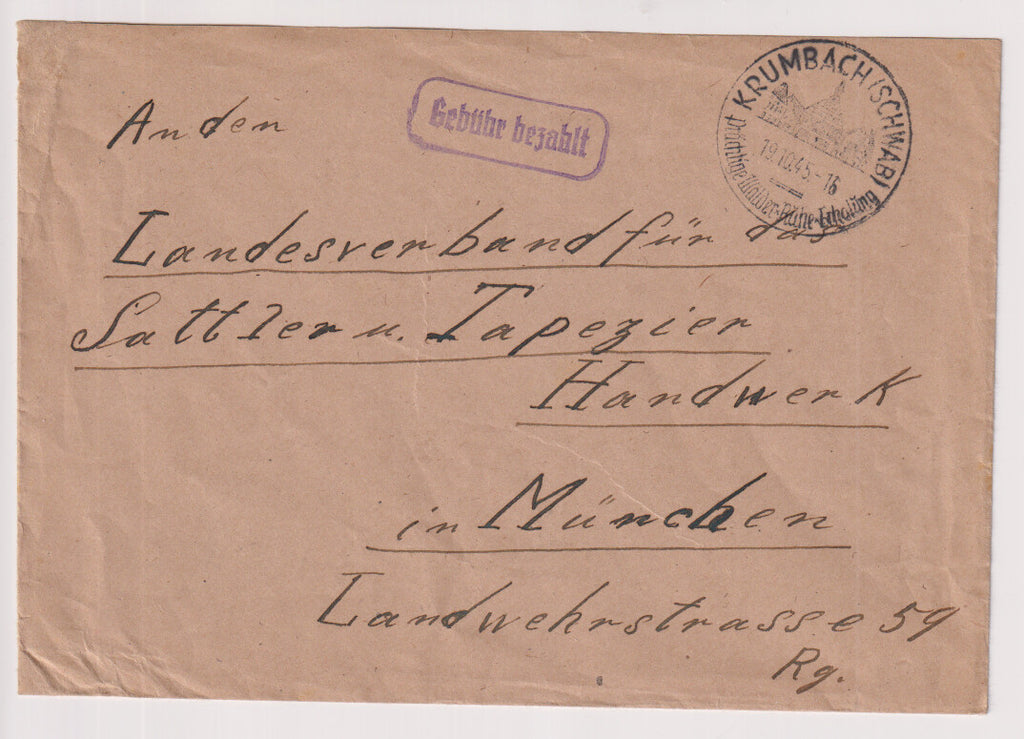 Gebühr bezahlt
KRUMBACH (SCHWAB)
19.10.45.-16
prächtige Wälder-Ruhe-Erholung
An den
Landesverband für das
Sattler u. Tapezier
Handwerk
in München
Landwehrstrasse 59
Rg.